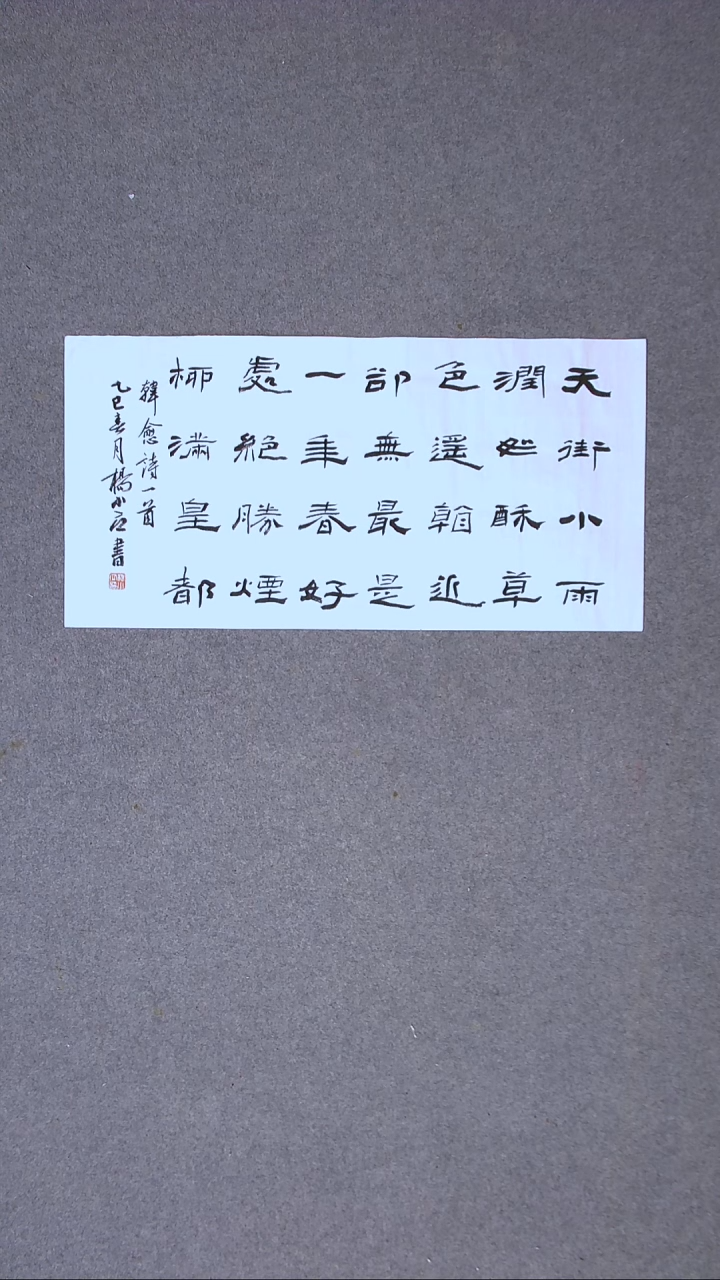 天街小雨
潤如酥草
色遥看近
卻無最是
一年春好
處絕勝煙
柳滿皇都
韓愈詩一首
乙巳春月楊小書